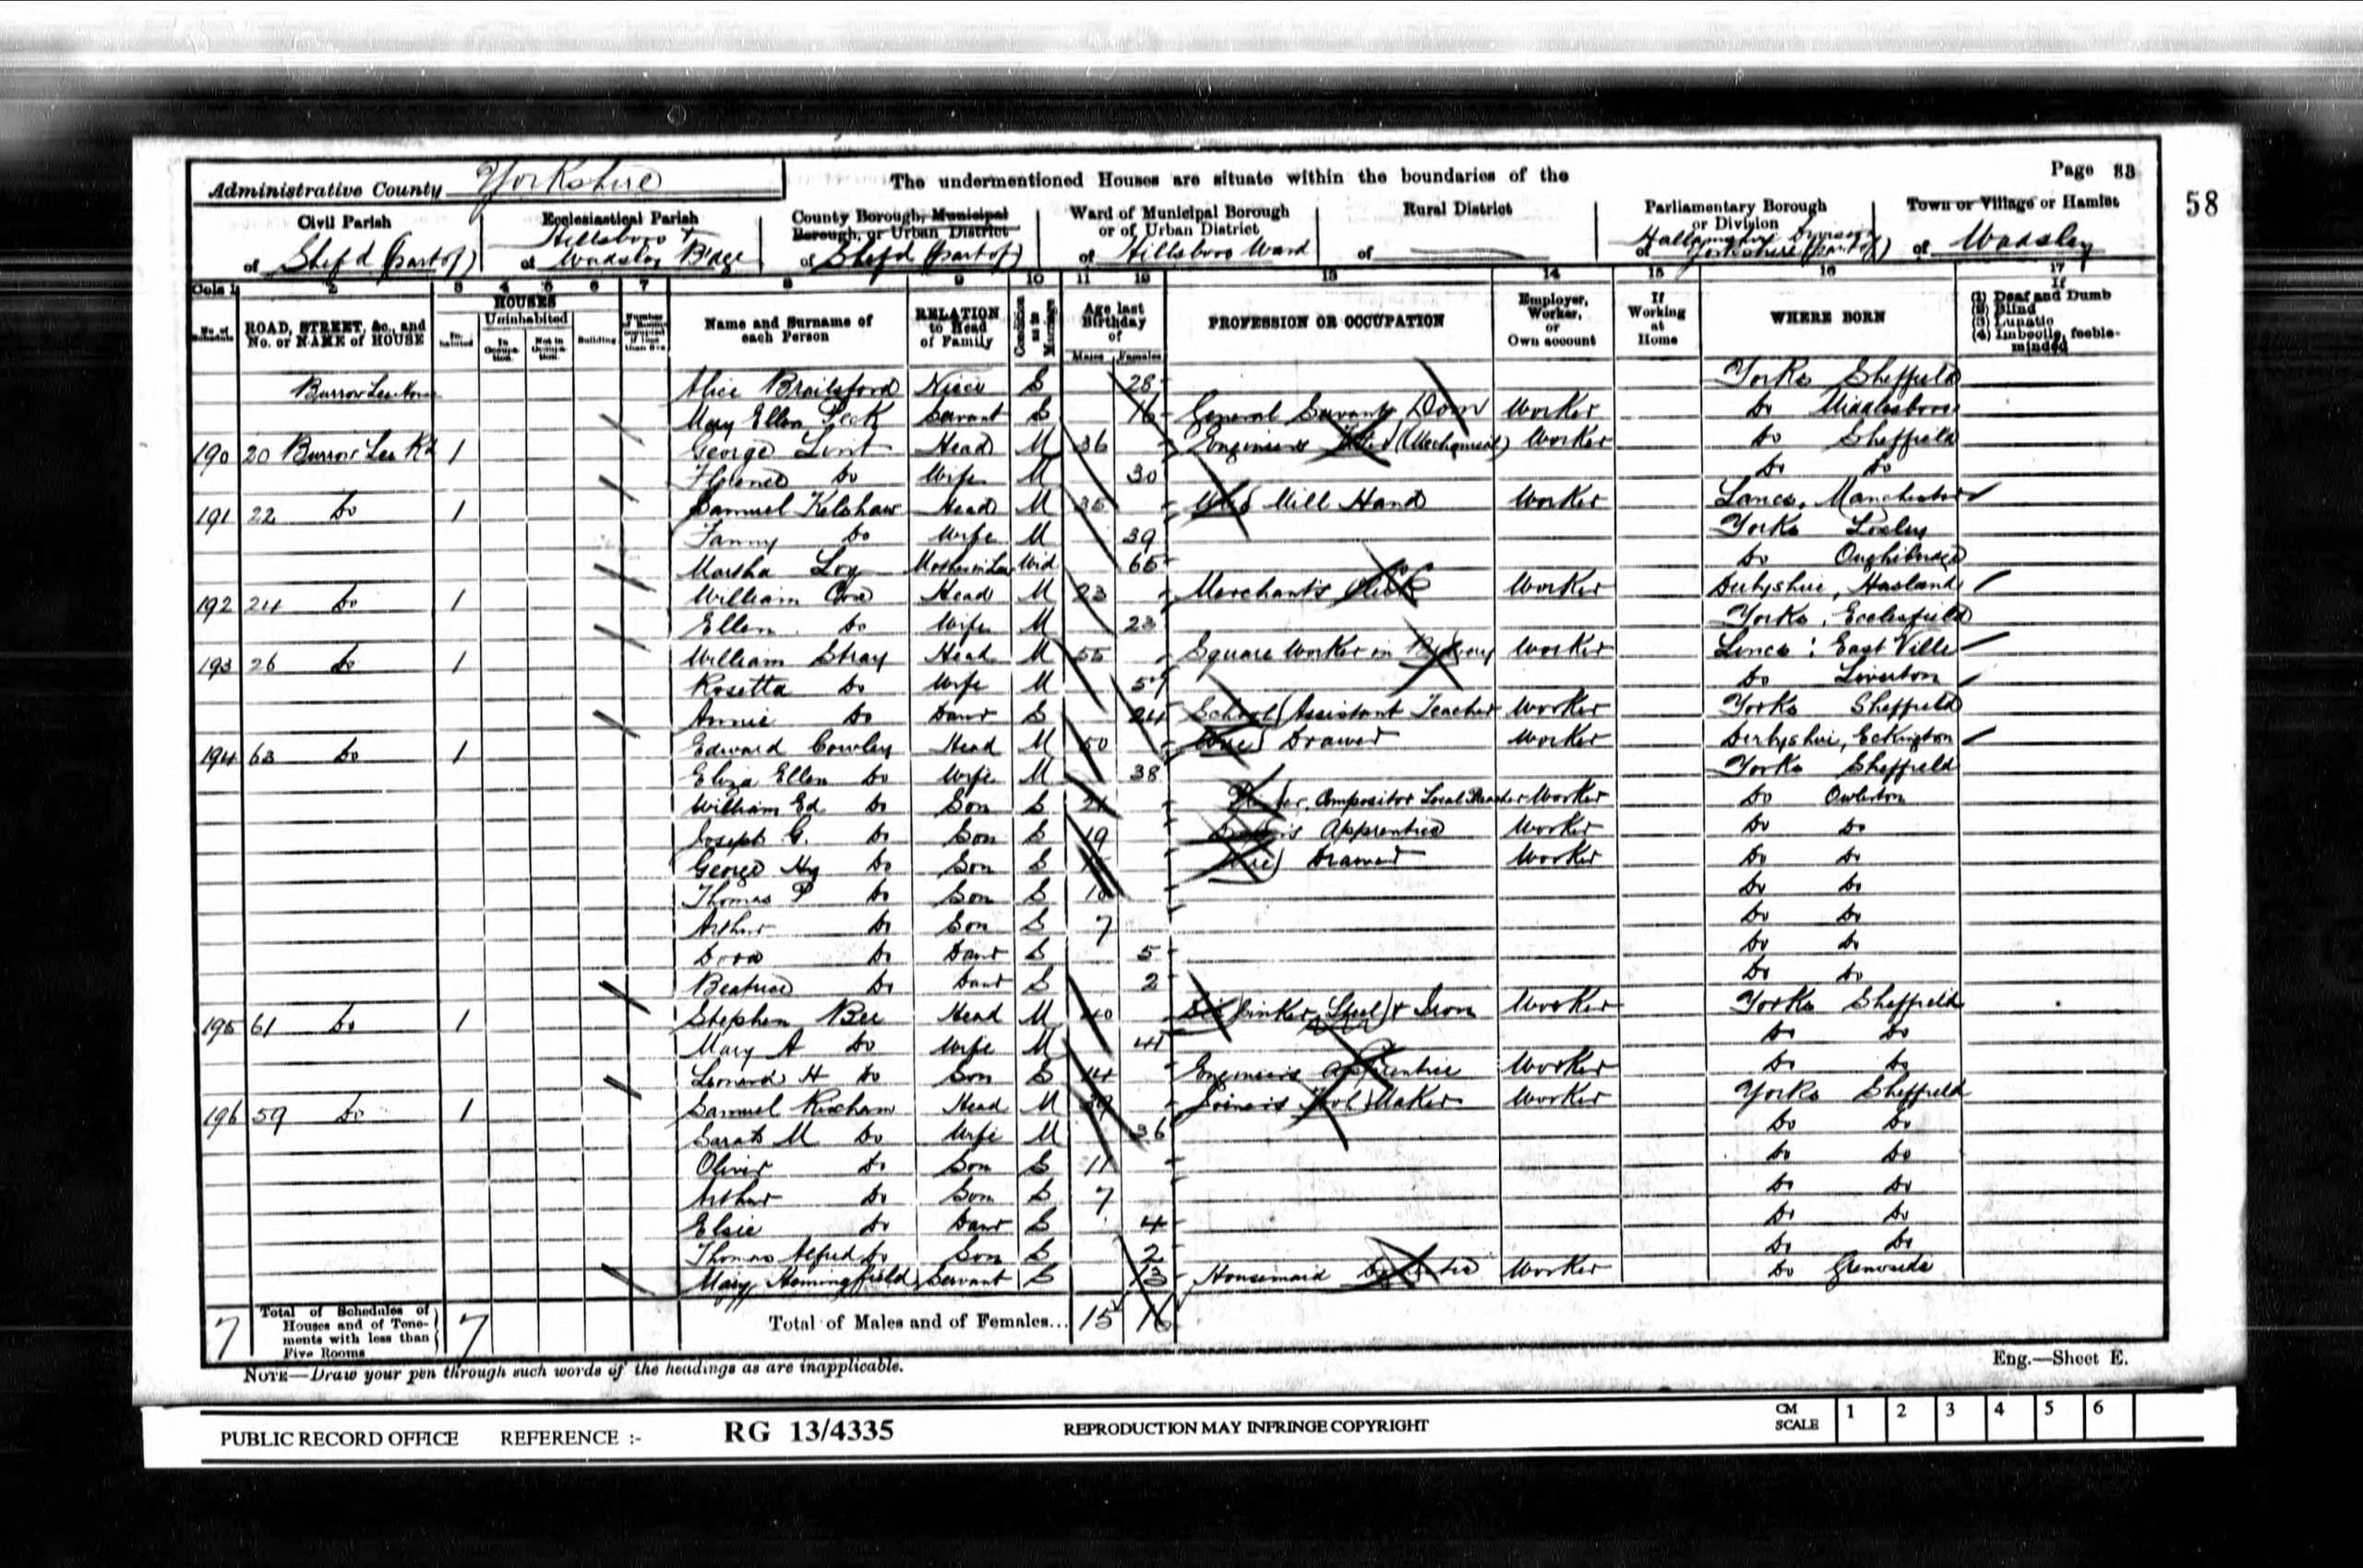 Administrative County Yorkshire
The undermentioned Houses are situate within the boundaries of the
Page 33
58
Civil Parish
of Shefd (part of)
Ecclesiastical Parish
Hillsboro +
of Wadsley Bdge
County Borough, Municipal
Borough, or Urban District
of Shefd (part of)
Ward of Municipal Borough
or of Urban District
of Hillsboro Ward
Rural District
of
Parliamentary Borough
or Division
of Hallamshire Division
Yorkshire (part of)
Town or Village or Hamlet
of Wadsley
Cols 1 2 3 4 5 6 7 8 9 10 11 12 13 14 15 16 17
No. of Schedule
ROAD, STREET, &c., and
No. or NAME of HOUSE
HOUSES
In-habited
Uninhabited
In Occupa-tion.
Not in Occupa-tion.
Building
Name and Surname of
each Person
RELATION
to Head
of Family
Condition as to Marriage
Age last
Birthday
of
Males Females
PROFESSION OR OCCUPATION
Employer,
Worker,
or
Own account
If
Working
at
Home
WHERE BORN
If
(1) Deaf and Dumb
(2) Blind
(3) Lunatic
(4) Imbecile, feeble-
minded
Alice Brailsford Niece S 28 Yorks Sheffield
Mary Ellen Peck Servant S 16 General Servant, Dom Worker Do Middlesboro
190 20 Burrow Lee Rd 1 George Lint Head M 36 Engineers Fitter (Mechanical) Worker Do Sheffield
Florence Do Wife M 30 Do Do
191 22 Do 1 Samuel Kelshaw Head M 35 Mill Hand Worker Lancs, Manchester
Fanny Do Wife M 39 Yorks Loxley
Martha Loy Mother in Law Wid 65 Do Oughtibridge
192 24 Do 1 William Head M 23 Merchant's Clerk Worker Derbyshire, Hasland
Ellen Do Wife M 23 Yorks, Ecclesfield
193 26 Do 1 William Stray Head M 55 Square Worker in Worker Lincs: East Ville
Rosetta Do Wife M 57 Do
Annie Do Daur S 24 School (Assistant Teacher Worker Yorks Sheffield
194 63 Do 1 Edward Cowley Head M 50 Wire Drawer Worker Derbyshire, Eckington
Eliza Ellen Do Wife M 38 Yorks Sheffield
William Ed Do Son S 21 Printer, Compositor Local Preacher Worker Do Owlerton
Joseph G. Do Son S 19 Apprentice Worker Do Do
George Hy Do Son S Wire Drawer Worker Do Do
Thomas P Do Son S 10 Do Do
Arthur Do Son S 7 Do Do
Dora Do Daur S 5 Do Do
Beatrice Do Daur S 2 Do Do
195 61 Do 1 Stephen Bee Head M 40 Die Sinker, Steel + Iron Worker Yorks Sheffield
Mary A Do Wife M 41 Do Do
Leonard H Do Son S 14 Engineers Apprentice Worker Do Do
196 59 Do 1 Samuel Head M 39 Joiner's Tool Maker Worker Yorks Sheffield
Sarah M Do Wife M 36 Do Do
Oliver Do Son S 11 Do Do
Arthur Do Son S 7 Do Do
Elsie Do Daur S 4 Do Do
Thomas Alfred Do Son S 2 Do Do
Mary Hemingfield Servant S 13 Housemaid Domestic Worker Do Grenoside
7 Total of Schedules of
Houses and of Tene-
ments with less than
Five Rooms
7
Total of Males and of Females... 15 16
NOTE—Draw your pen through such words of the headings as are inapplicable.
Eng.—Sheet E.
PUBLIC RECORD OFFICE REFERENCE :- RG 13/4335 REPRODUCTION MAY INFRINGE COPYRIGHT
CM
SCALE
1 2 3 4 5 6